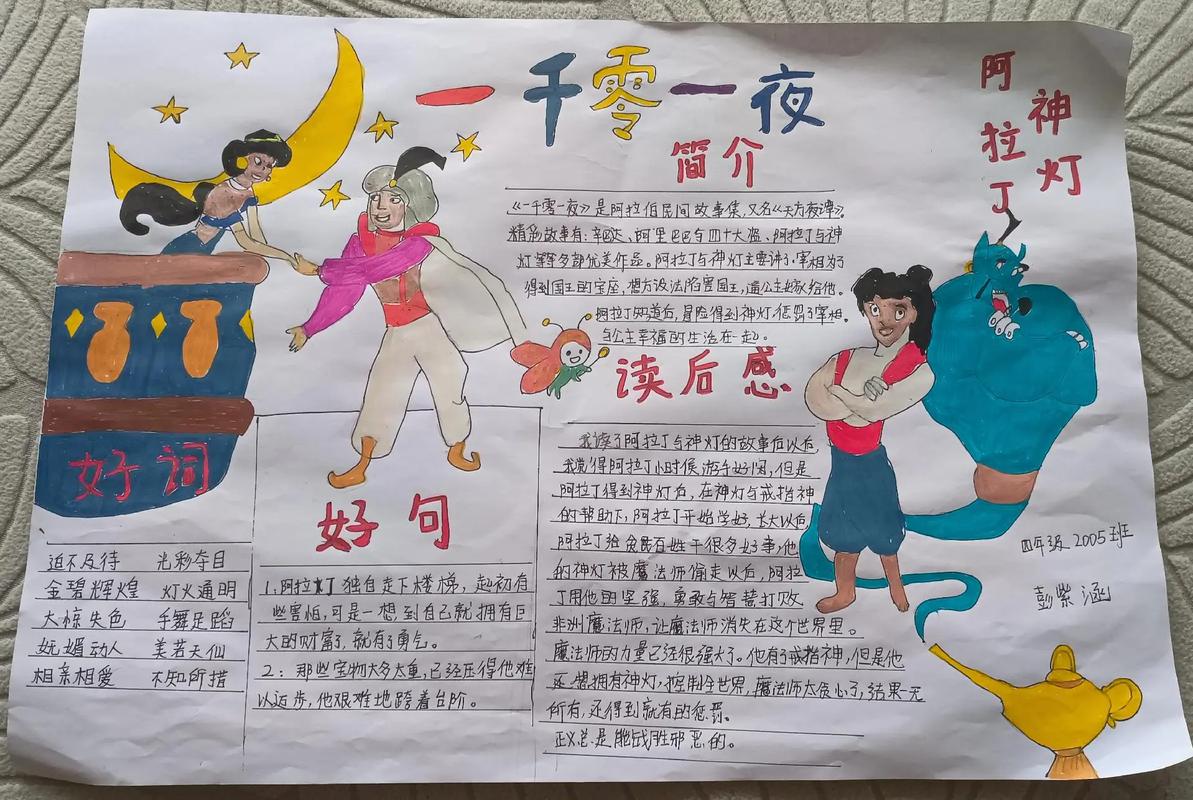 一千零一夜
简介
《一千零一夜》是阿拉伯民间故事集,又名《天方夜谭》。
精彩故事有:辛巴达、阿里巴巴与四十大盗、阿拉丁与神
灯等等多部优美作品。阿拉丁与神灯主要讲了:宰相为了
得到国王的宝座,想方设法陷害国王,逼公主嫁给他。
阿拉丁知道后,冒险得到神灯,惩罚了宰相。
与公主幸福的生活在一起。
阿拉丁
神灯
读后感
我读了阿拉丁与神灯的故事后以后,
我觉得阿拉丁小时候游手好闲,但是
阿拉丁得到神灯后,在神灯与戒指神
的帮助下,阿拉丁开始学好,长大以后,
阿拉丁给贫民百姓干很多好事,他
的神灯被魔法师偷走以后,阿拉
丁用他的坚强,勇敢与智慧打败
非洲魔法师,让魔法师消失在这个世界里。
魔法师的力量已经很强大了。他有了戒指神,但是他
还想拥有神灯,控制全世界,魔法师太贪心了,结果一无
所有,还得到就有的惩罚。
正义总是能战胜邪恶的。
好词
迫不及待 光彩夺目
金碧辉煌 灯火通明
大惊失色 手舞足蹈
妩媚动人 美若天仙
相亲相爱 不知所措
好句
1:阿拉丁独自走下楼梯,起初有
些害怕,可是一想到自己就拥有巨
大的财富了,就有了勇气。
2:那些宝物大多太重,已经压得他难
以迈步,他艰难地跨着台阶。
四年级2005班
彭紫涵